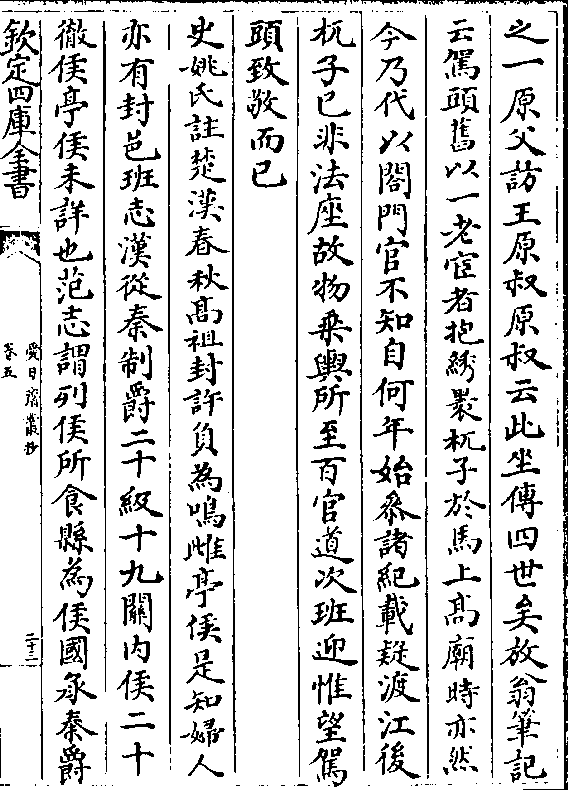 之一原父訪王原叔原叔云此坐傳四世矣放翁筆記
云駕頭舊以一老宦者抱綉裹杌子於馬上高廟時亦然
今乃代以閤門官不知自何年始叅諸紀載疑渡江後
杌子已非法座故物乗輿所至百官道次班迎惟望駕
頭致敬而已
史姚氏註楚漢春秋髙祖封許負為鳴雌亭侯是知婦人
亦有封邑班志漢從秦制爵二十級十九關内侯二十
徹侯亭侯未詳也范志謂列侯所食縣為侯國承秦爵
欽定四庫全書
愛日齋叢抄
卷五
二十二